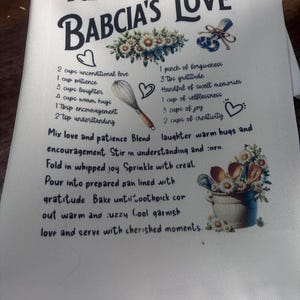 BABCIA'S LOVE
2 cups unconditional love
1 cup patience
3 cups laughter
4 cups warm hugs
1 tbsp encouragement
2 Tsp understanding
1 pinch of forgiveness
3 Tbs gratitude
Handful of sweet memories
1 cup of selflessness
5 cups of joy
2 cups of creativity
Mix love and patience Blend laughter warm hugs and
encouragement Stir in understanding and
Fold in whipped joy Sprinkle with creat
Pour into prepared pan lined with
gratitude Bake until toothpick com
out warm and uzzy Cool garnish
love and serve with cherished moments